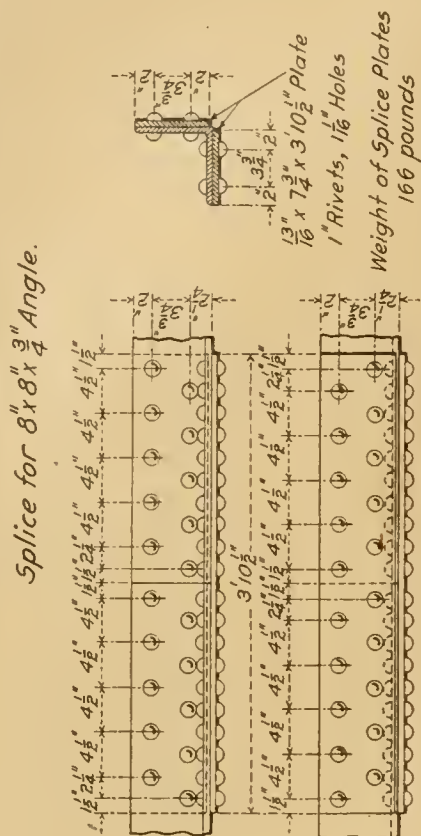 Splice for 8" x 8" x 3/4" Angle.
1 1/2" 2 1/4" 4 1/2" 4 1/2" 4 1/2" 4 1/2" 1 1/2" 1 1/2" 2 1/4" 4 1/2" 4 1/2" 4 1/2" 4 1/2" 1 1/2"
2"
3 3/4"
2 1/4"
3' 10 1/2"
1 1/2" 4 1/2" 4 1/2" 4 1/2" 4 1/2" 2 1/4" 1 1/2" 1 1/2" 4 1/2" 4 1/2" 4 1/2" 4 1/2" 2 1/4" 1 1/2"
2"
3 3/4"
2 1/4"
2"
3 3/4"
2"
2" 3 3/4" 2"
13/16" x 7 3/4" x 3' 10 1/2" Plate
1" Rivets, 1 1/16" Holes
Weight of Splice Plates
166 pounds